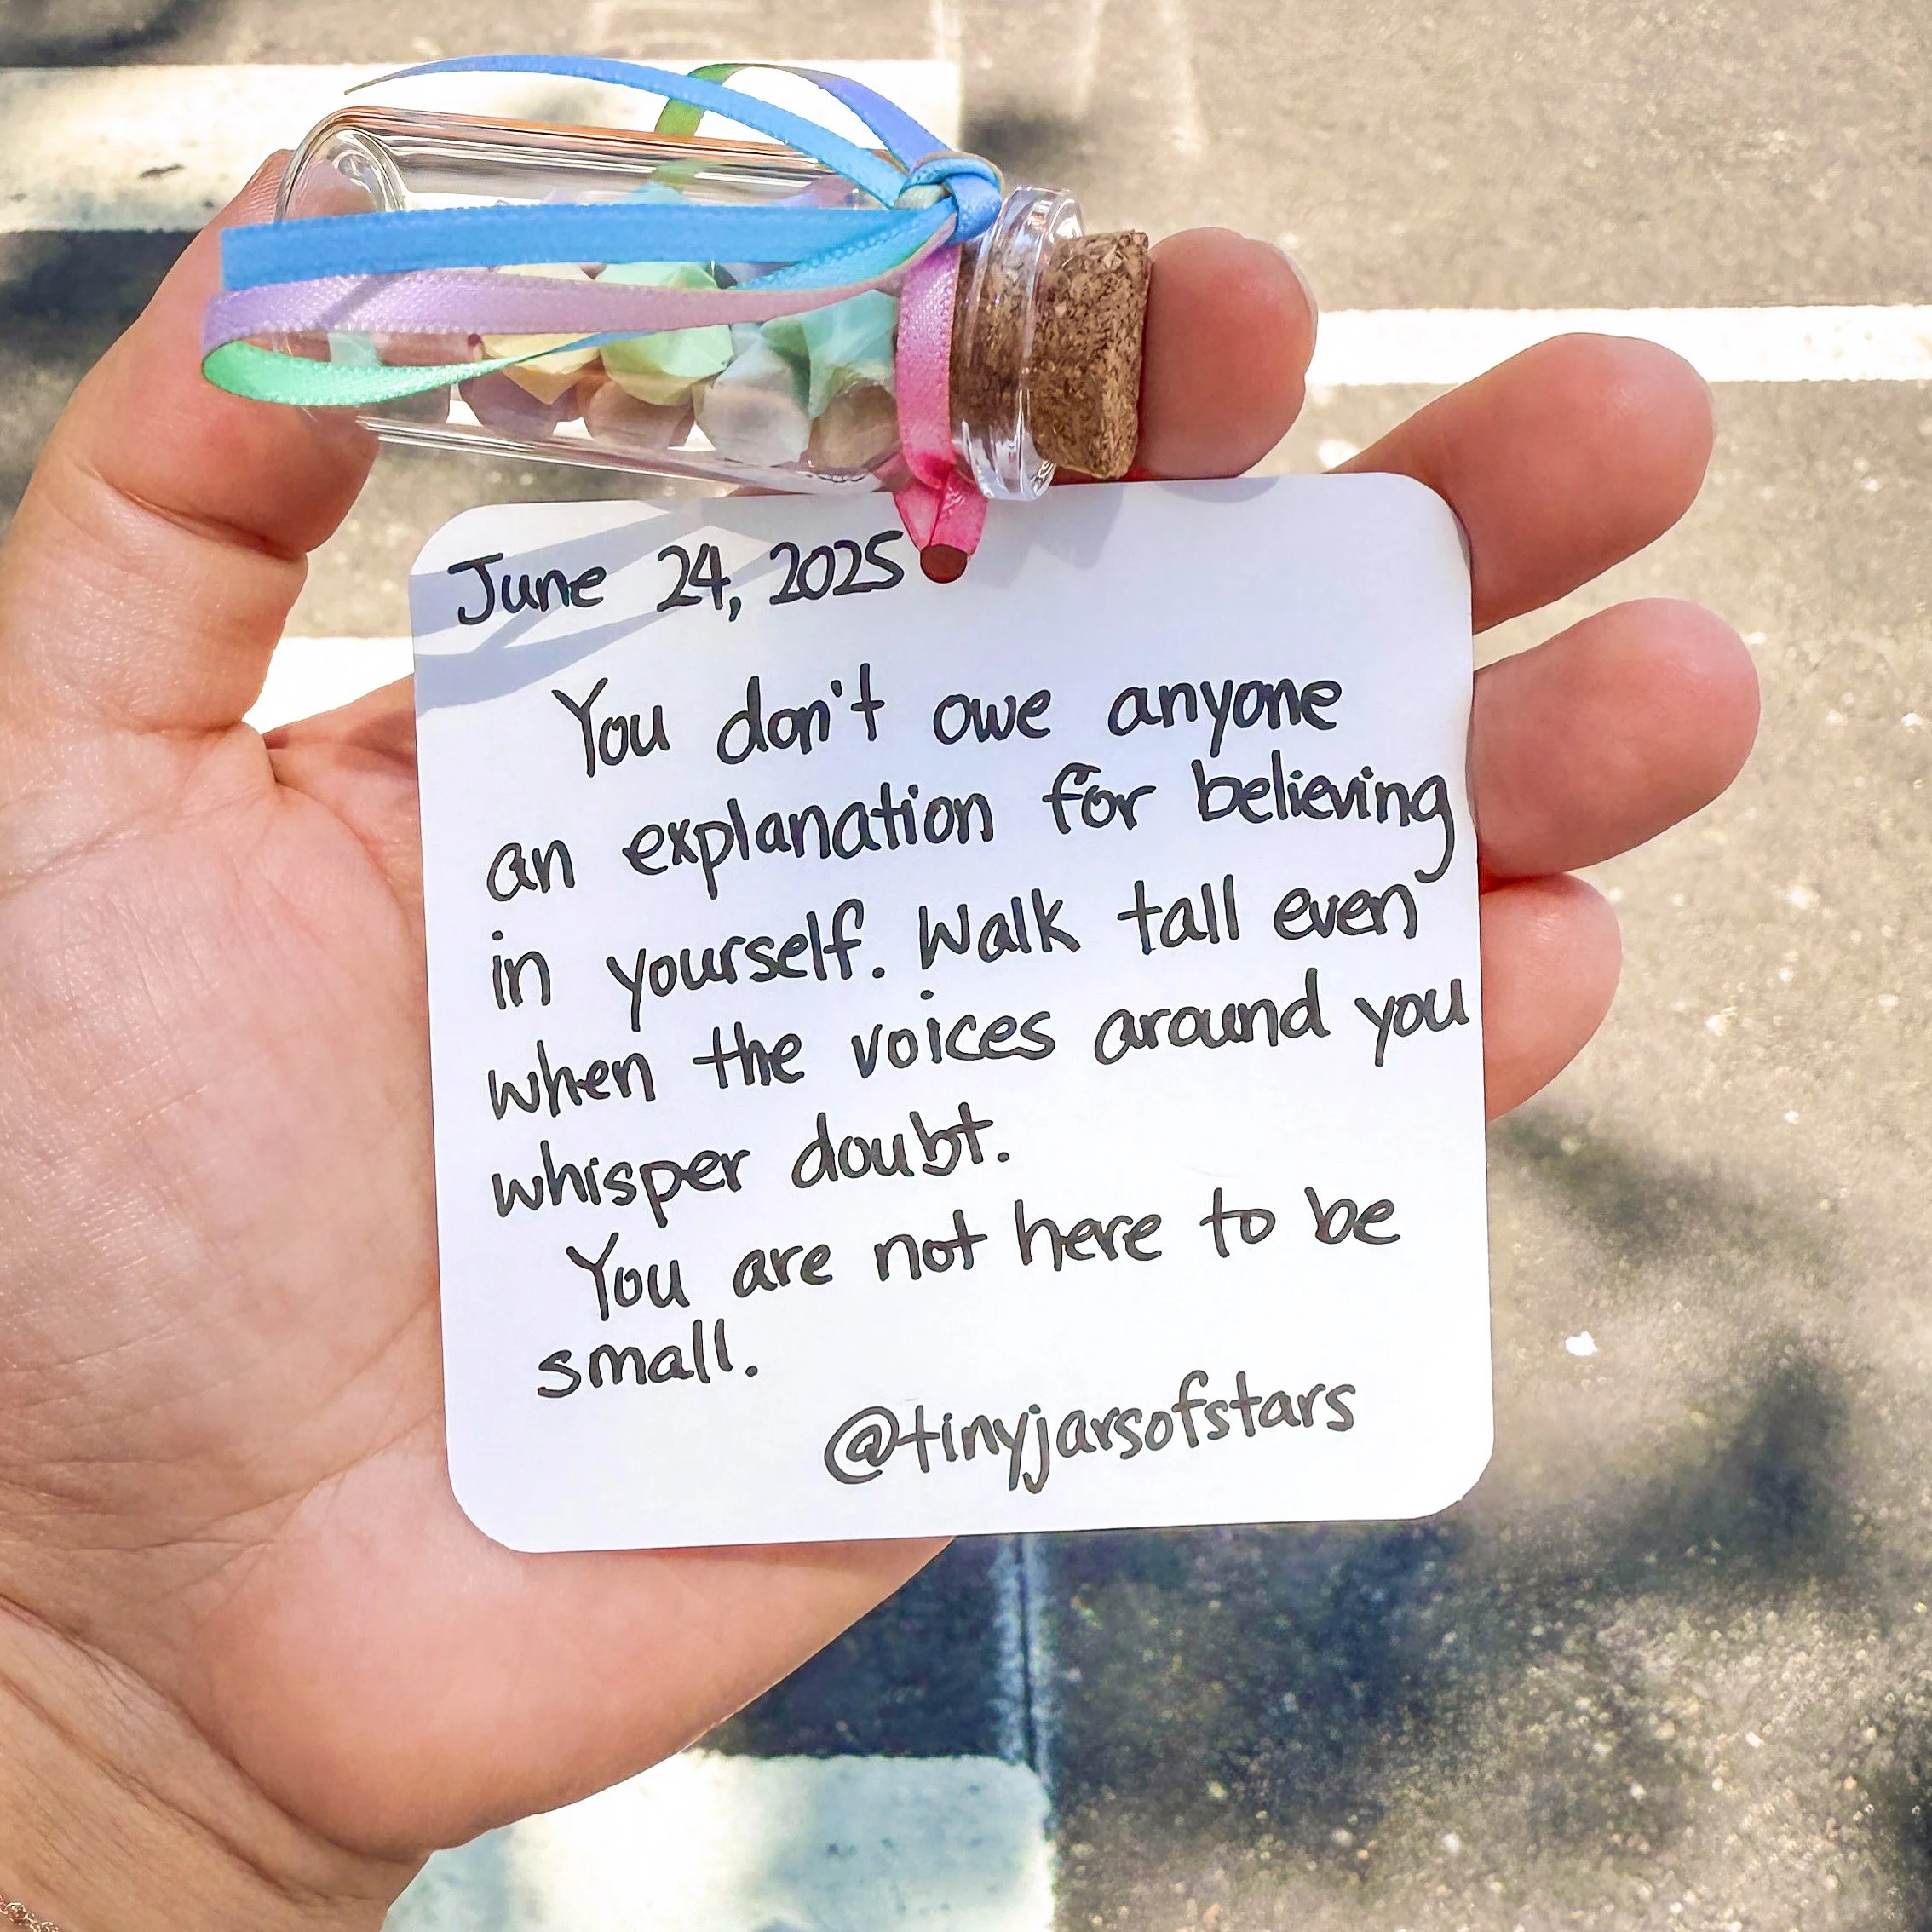 June 24, 2025
You don't owe anyone
an explanation for believing
in yourself. Walk tall even
when the voices around you
whisper doubt.
You are not here to be
small.
@tinyjarsofstars